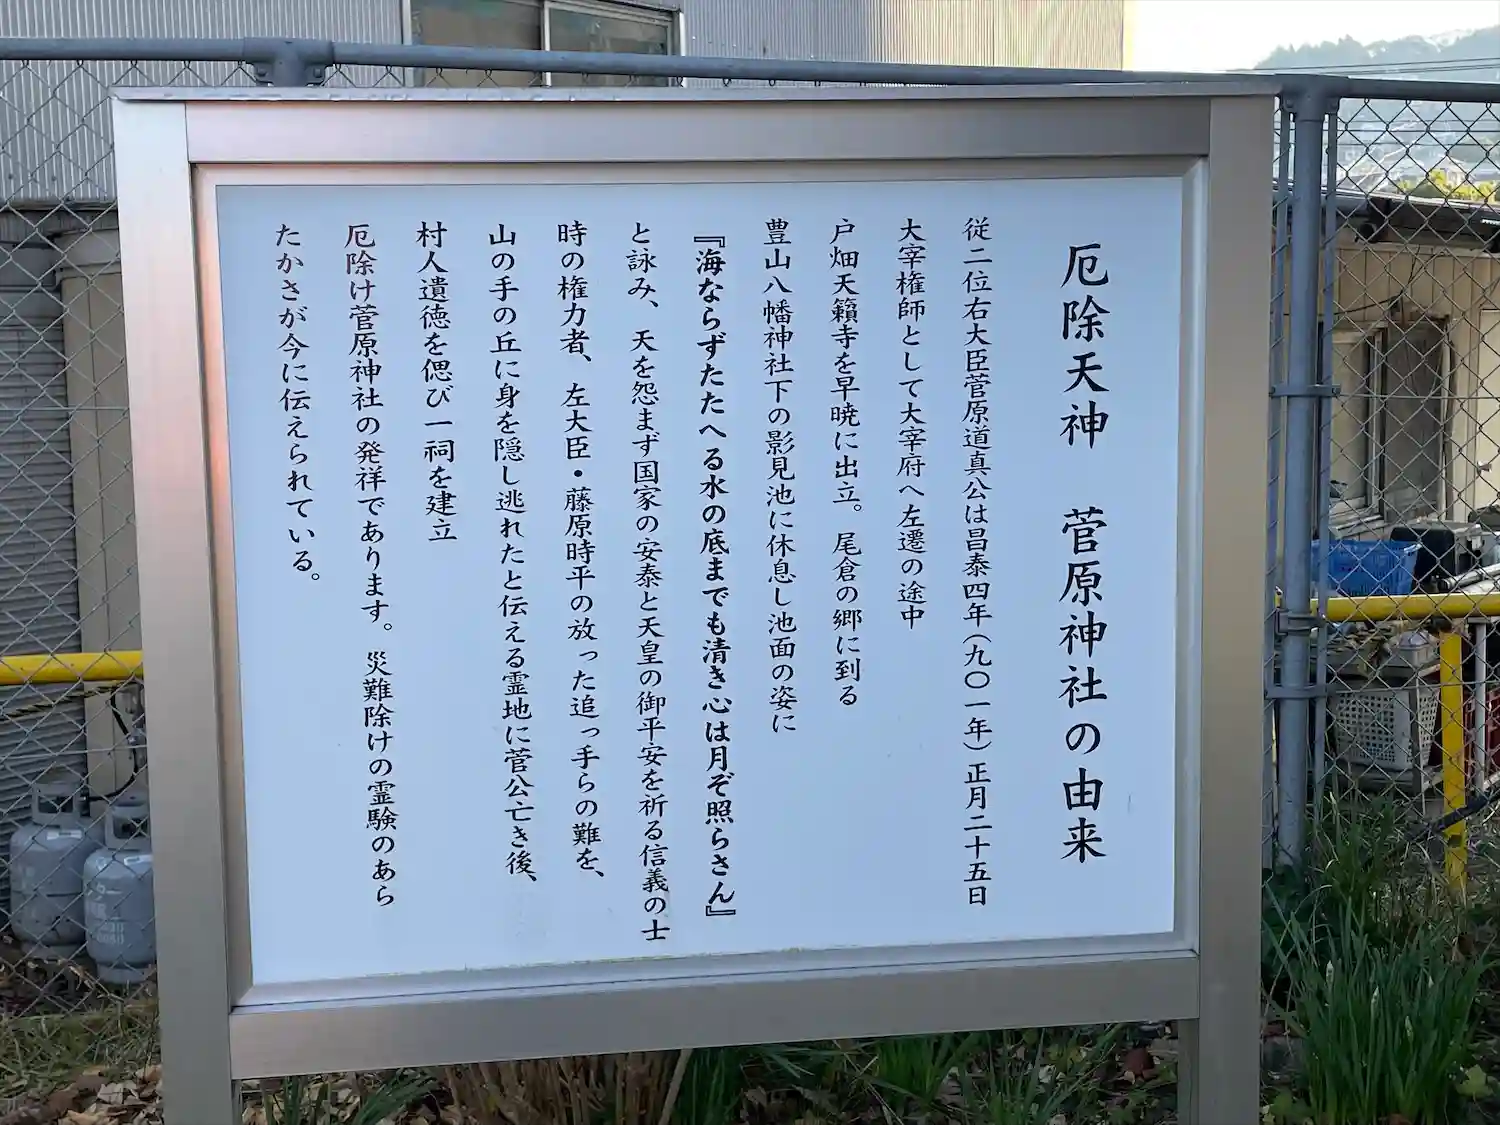 厄除天神　菅原神社の由来
従二位右大臣菅原道真公は昌泰四年（九〇一年）正月二十五日
大宰権師として大宰府へ左遷の途中
戸畑天籟寺を早暁に出立。尾倉の郷に到る
豊山八幡神社下の影見池に休息し池面の姿に
『海ならずたたへる水の底までも清き心は月ぞ照らさん』
と詠み、天を怨まず国家の安泰と天皇の御平安を祈る信義の士
時の権力者、左大臣・藤原時平の放った追っ手らの難を、
山の手の丘に身を隠し逃れたと伝える霊地に菅公亡き後、
村人遺徳を偲び一祠を建立
厄除け菅原神社の発祥であります。災難除けの霊験のあら
たかさが今に伝えられている。